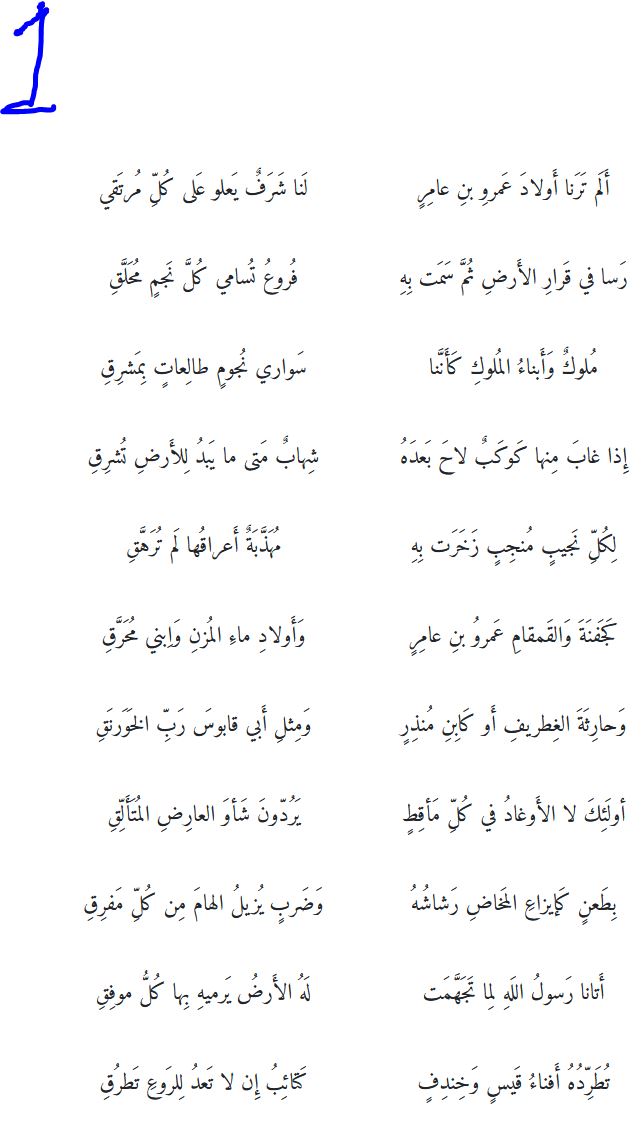 1
أَلَم تَرَنا أَولادَ عَمروِ بنِ عامِرٍ لَنا شَرَفٌ يَعلو عَلى كُلِّ مُرتَقي
رَسا في قَرارِ الأَرضِ ثُمَّ سَمَت بِهِ فُروعُ تُسامي كُلَّ نَجمٍ مُحَلَّقِ
مُلوكٌ وَأَبناءُ المُلوكِ كَأَنَّنا سَواري نُجومٍ طالِعاتٍ بِمَشرِقِ
إِذا غابَ مِنها كَوكَبٌ لاحَ بَعدَهُ شِهابٌ مَتى ما يَبدُ لِلأَرضِ تُشرِقِ
لِكُلِّ نَجيبٍ مُنجِبٍ زَخَرَت بِهِ مُهَذَّبَةٌ أَعراقُها لَم تُرَهَّقِ
كَجَفنَةَ وَالقَمقامِ عَمروُ بنِ عامِرٍ وَأَولادِ ماءِ المُزنِ وَاِبني مُحَرَّقِ
وَحارِثَةَ الغِطريفِ أَو كَاِبنِ مُنذِرٍ وَمِثلِ أَبي قابوسَ رَبِّ الخَوَرنَقِ
أولَئِكَ لا الأَوغادُ في كُلِّ مَأقِطٍ يَرُدّونَ شَأوَ العارِضِ المُتَأَلِّقِ
بِطَعنٍ كَإيزاعِ المَخاضِ رَشاشُهُ وَضَربٍ يُزيلُ الهامَ مِن كُلِّ مَفرِقِ
أَتانا رَسولُ اللَهِ لِما تَجَهَّمَت لَهُ الأَرضُ يَرميهِ بِها كُلُّ موفِقِ
تُطَرِّدُهُ أَفناءُ قَيسٍ وَخِندِفٍ كَتائِبُ إِن لا تَعدُ لِلرَوعِ تَطرُقِ